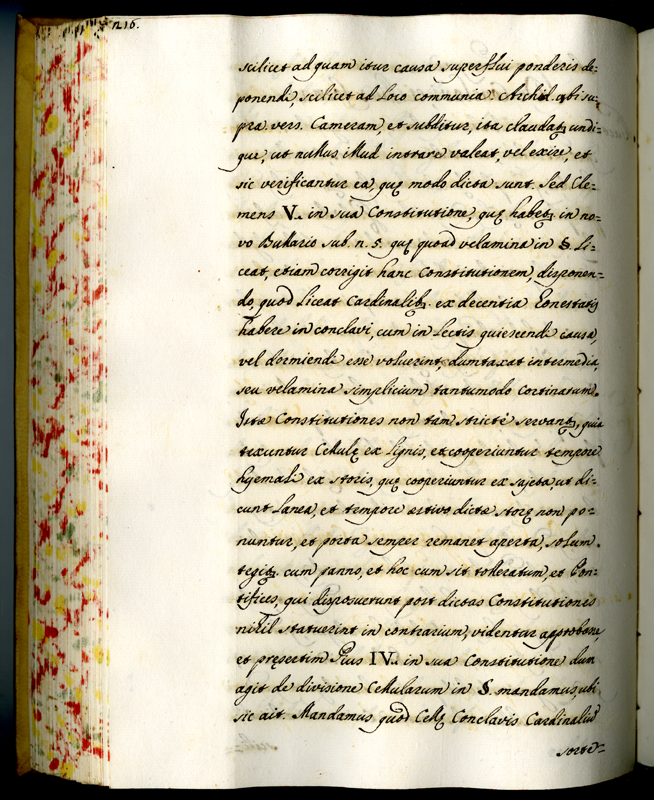 n 216.
scilicet ad quam itur causa superflui ponderis de=
ponendi, scilicet ad loco communia. Archid. ubi su=
pra vers. Cameram, et subditur, ita claudatʒ undi=
que, ut nullus illud intrare valeat, vel exire, et
sic verificantur ea, quę modo dicta sunt. Sed Cle=
mens V. in sua Constitutione, quę habetʒ. in no=
vo Bullario sub. n. 5. quę quoad velamina in §. li=
ceat, etiam corrigit hanc Constitutionem, disponen=
do, quod liceat Cardinalibʒ. ex decentia honestatis
habere in conclavi, cum in lectis quiescendi causa,
vel dormiendi esse voluerint, dumtaxat intermedia,
seu velamina simplicium tantumodo Cortinarum.
Istæ Constitutiones non tam strictè servantʒ, quia
texuntur Cellulę ex lignis, et cooperiuntur tempore
hyemali ex storis, quę cooperiuntur ex sujeta, ut di=
cunt lanea, et tempore æstivo dictæ storę non po=
nuntur, et porta semper remanet aperta, solum
tegitʒ. cum panno, et hoc cum sit tolleratum, et Pon=
tifices, qui disposuerunt post dictas Constitutiones
nihil statuerint in contrarium, videntur approbare,
et pręsertim Pius IV. in sua Constitutione dum
agit de divisione Cellularum in §. mandamus, ubi
sic ait. Mandamus quod Cellę Conclavis Cardinaliũ
sorte=